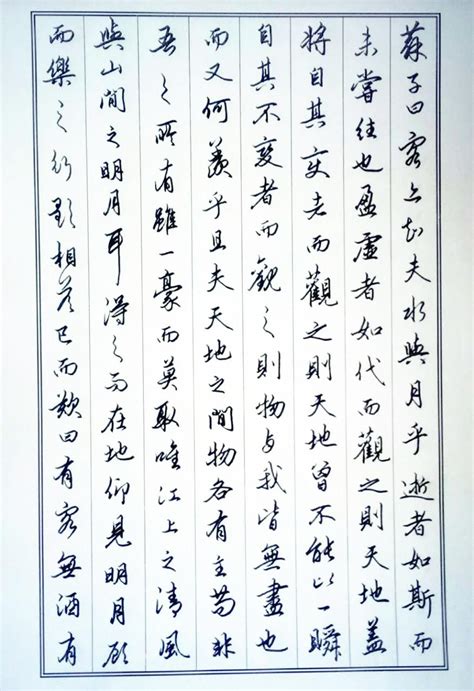 蘇子曰客亦知夫水與月乎逝者如斯而
未嘗往也盈虛者如代而觀之則天地蓋
將自其变者而觀之則天地曾不能以一瞬
自其不變者而觀之則物与我皆無盡也
而又何羨乎且夫天地之間物各有主茍非
吾之所有雖一豪而莫取唯江上之清風
與山間之明月耳得之而在地仰見明月顧
而樂之行歌相答已而歎曰有客無酒有